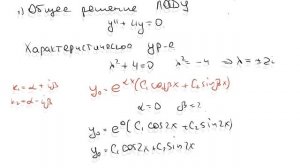 1) Общее решение ЛОДУ
y'' + 4y = 0.
Характеристическое ур-е
λ² + 4 = 0 λ² = -4 ⇒ λ = ± 2i
k₁ = α + iβ
k₂ = α - iβ
y₀ = e^{αx} (C₁ cos βx + C₂ sin βx)
α = 0 β = 2
y₀ = e⁰ (C₁ cos 2x + C₂ sin 2x)
y₀ = C₁ cos 2x + C₂ sin 2x